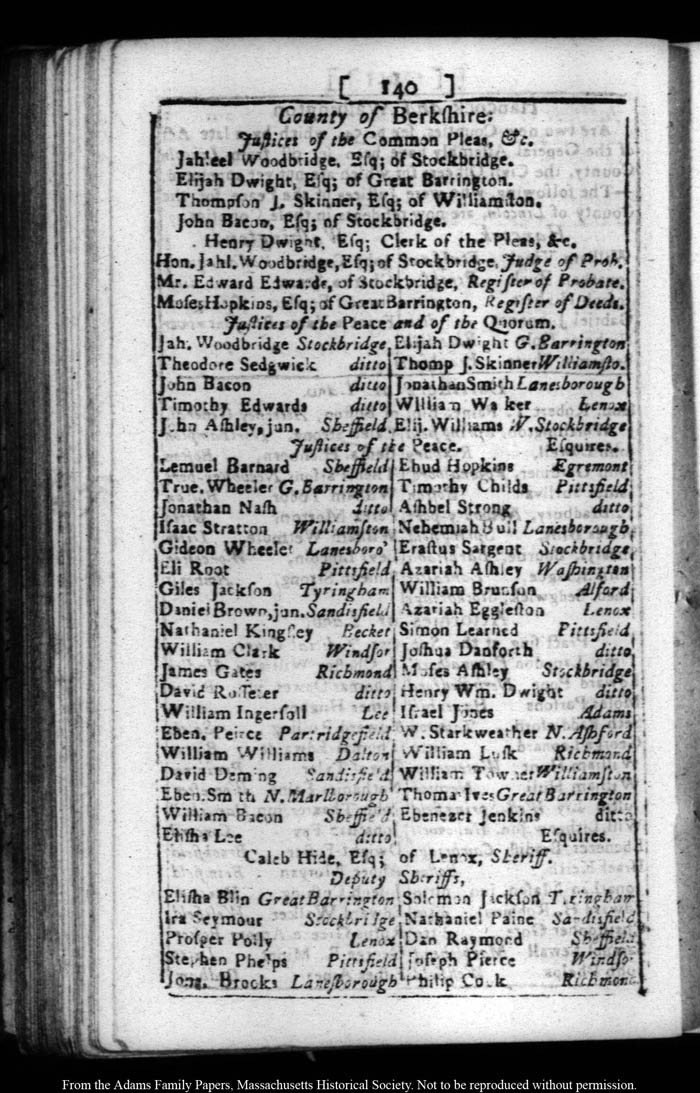 [ 140 ]
County of Berkſhire:
Juſtices of the Common Pleas, &c.
Jahleel Woodbridge, Eſq; of Stockbridge.
Elijah Dwight, Eſq; of Great Barrington.
Thompſon J. Skinner, Eſq; of Williamſton.
John Bacon, Eſq; of Stockbridge.
Henry Dwight, Eſq; Clerk of the Pleas, &c.
Hon. Jahl. Woodbridge, Eſq; of Stockbridge, Judge of Prob.
Mr. Edward Edwards, of Stockbridge, Regiſter of Probate.
Moſes Hopkins, Eſq; of Great Barrington, Regiſter of Deeds.
Juſtices of the Peace and of the Quorum.
Jah. Woodbridge Stockbridge Elijah Dwight G. Barrington
Theodore Sedgwick ditto Thomp J. Skinner Williamſto.
John Bacon ditto Jonathan Smith Lanesborough
Timothy Edwards ditto William Walker Lenox
John Aſhley, jun. Sheffield Elij. Williams W. Stockbridge
Juſtices of the Peace. Eſquires.
Lemuel Barnard Sheffield Ehud Hopkins Egremont
True. Wheeler G. Barrington Timothy Childs Pittsfield
Jonathan Naſh ditto Aſhbel Strong ditto
Iſaac Stratton Williamſton Nehemiah Bull Lanesborough
Gideon Wheeler Lanesboro' Eraſtus Sargent Stockbridge
Eli Root Pittsfield Azariah Aſhley Waſhington
Giles Jackſon Tyringham William Brunſon Alford
Daniel Brown, jun. Sandisfield Azariah Eggleſton Lenox
Nathaniel Kingſley Becket Simon Learned Pittsfield
William Clark Windſor Joſhua Danforth ditto
James Gates Richmond Moſes Aſhley Stockbridge
David Roſſeter ditto Henry Wm. Dwight ditto
William Ingerſoll Lee Iſrael Jones Adams
Eben. Peirce Partridgefield W. Starkweather N. Aſhford
William Williams Dalton William Luſk Richmond
David Deming Sandisfield William Towner Williamſton
Eben. Smith N. Marlborough Thomas Ives Great Barrington
William Bacon Sheffield Ebenezer Jenkins ditto
Eliſha Lee ditto Eſquires.
Caleb Hide, Eſq; of Lenox, Sheriff.
Deputy Sheriffs,
Eliſha Blin Great Barrington Solomon Jackſon Tyringham
Ira Seymour Stockbridge Nathaniel Paine Sandisfield
Proſper Polly Lenox Dan Raymond Sheffield
Stephen Phelps Pittsfield Joſeph Pierce Windſor
Jona. Brooks Laneſborough Philip Cook Richmond
From the Adams Family Papers, Massachusetts Historical Society. Not to be reproduced without permission.